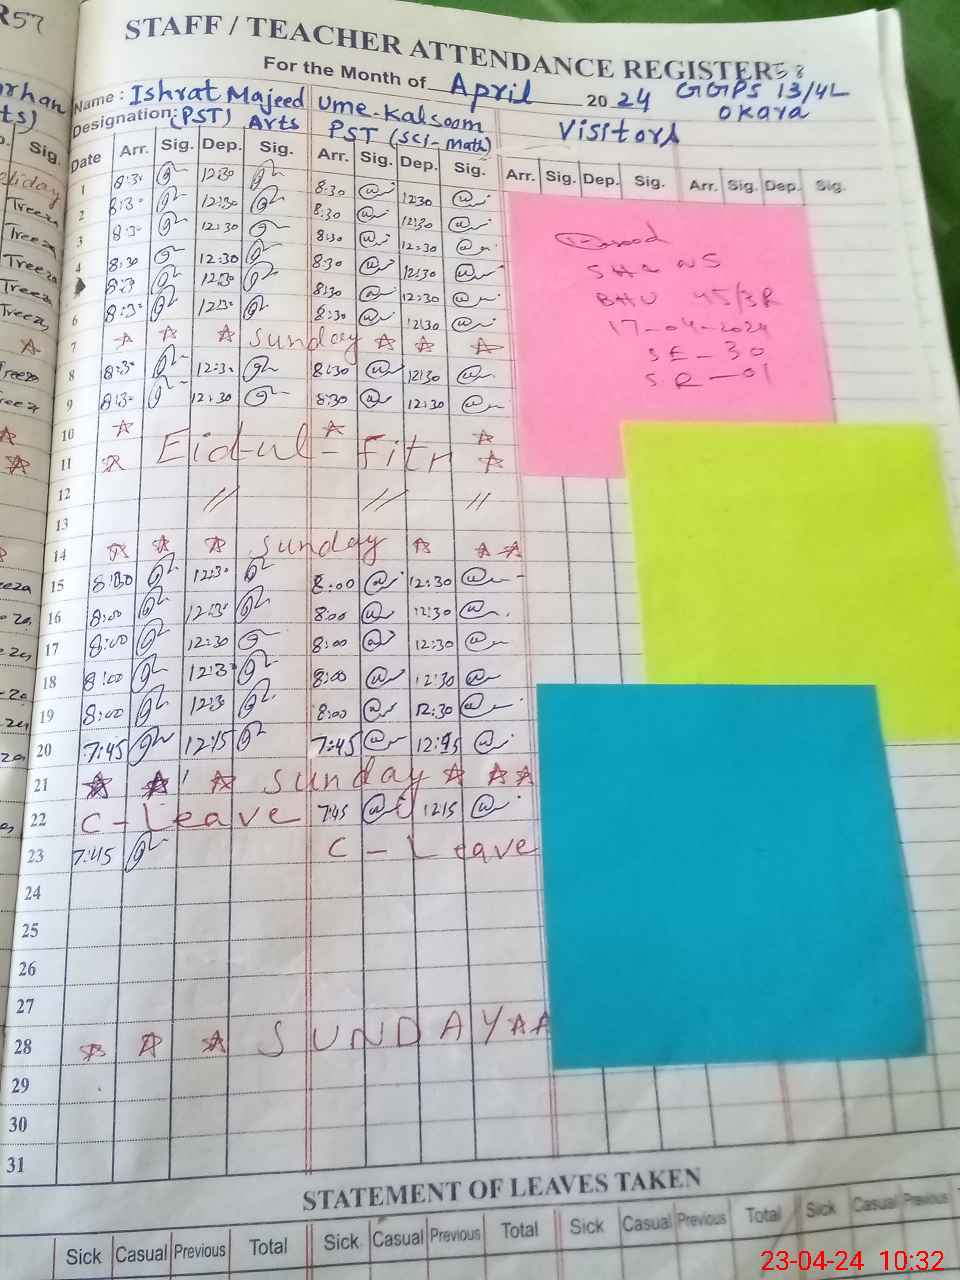 R57
STAFF / TEACHER ATTENDANCE REGISTER 58
For the Month of April 2024 GGPS 13/4L
Okara
Name : Ishrat Majeed Ume-Kalsoom
Designation: (PST) Arts PST (Sci-Math) Visitors
Date Arr. Sig. Dep. Sig. Arr. Sig. Dep. Sig. Arr. Sig. Dep. Sig. Arr. Sig. Dep. Sig.
1 8:30 12:30 8:30 12:30
2 8:30 12:30 8:30 12:30
3 8:30 12:30 8:30 12:30
4 8:30 12:30 8:30 12:30
8:30 12:30 8:30 12:30
6 8:30 12:30 8:30 12:30
7 Sunday
8 8:30 12:30 8:30 12:30
9 8:30 12:30 8:30 12:30
10
11 Eid-ul-Fitr
12 // // //
13
14 Sunday
15 8:00 12:30 8:00 12:30
16 8:00 12:30 8:00 12:30
17 8:00 12:30 8:00 12:30
18 8:00 12:30 8:00 12:30
19 8:00 12:30 8:00 12:30
20 7:45 12:15 7:45 12:45
21 Sunday
22 C-Leave 7:45 12:15
23 7:45 C-Leave
24
25
26
27
28 SUNDAY
29
30
31
BHU 45/3R
17-04-2024
SE-30
SR-01
STATEMENT OF LEAVES TAKEN
Sick Casual Previous Total Sick Casual Previous Total Sick Casual Previous Total Sick Casual Previous
23-04-24 10:32